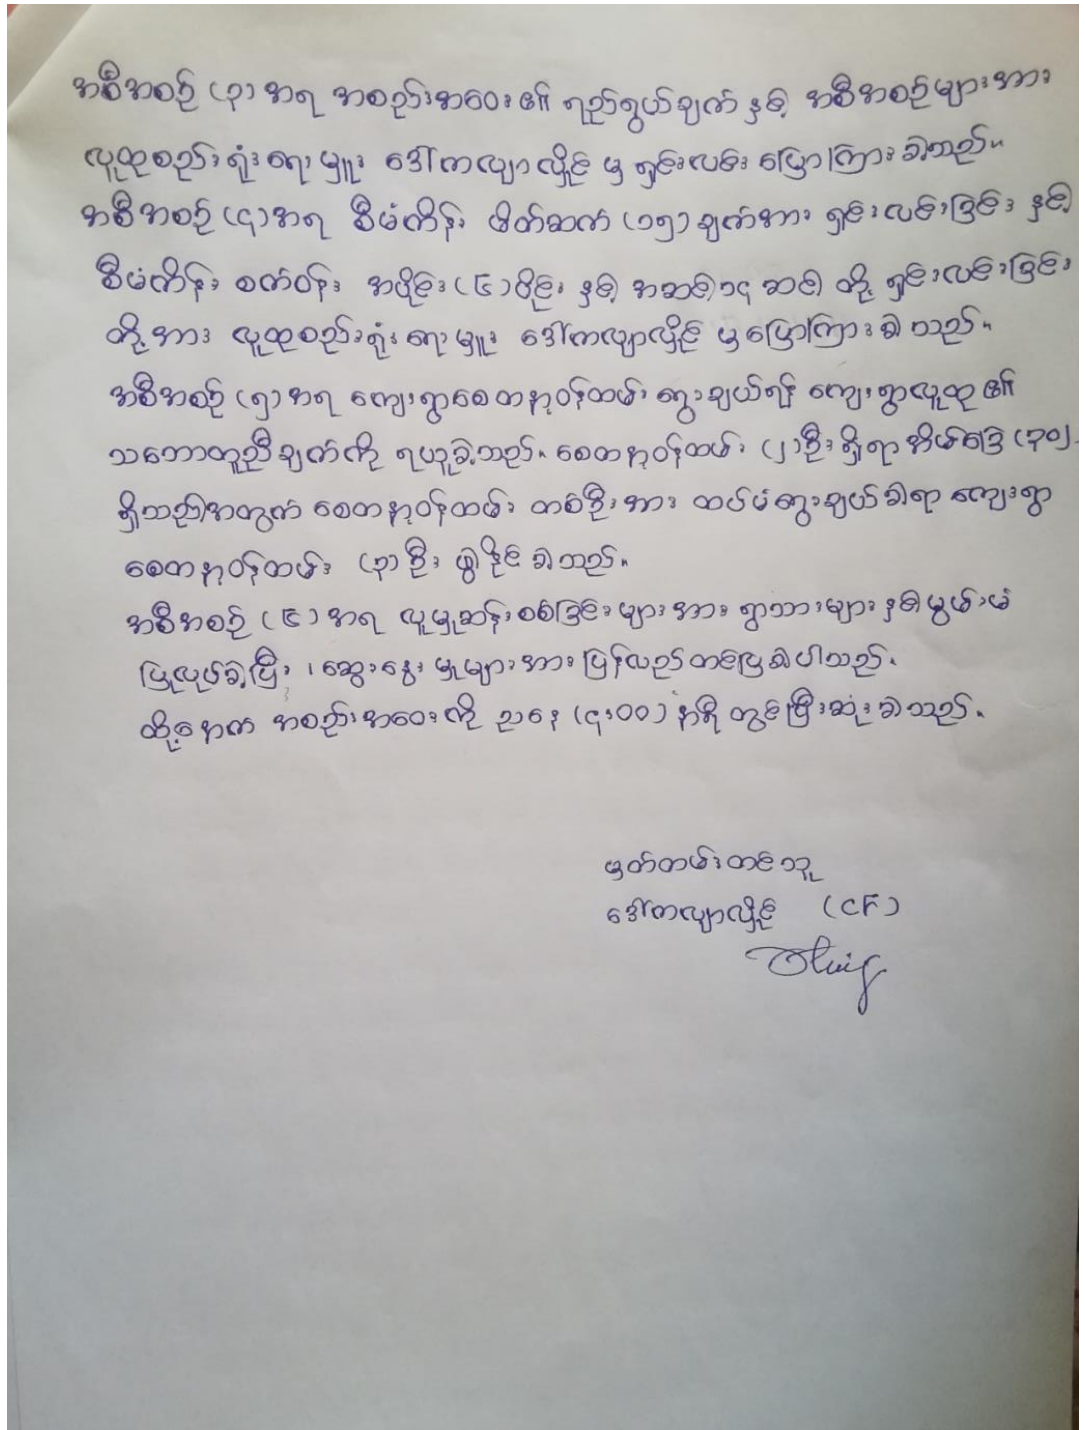 အစီအစဉ် (၃) အရ အစည်းအဝေး၏ ရည်ရွယ်ချက် နှင့် အစီအစဉ်များအား
လူထုစည်းရုံးရေးမှူး ဒေါ်ကလျာလှိုင် မှ ရှင်းလင်း ပြောကြားခဲ့သည်။
အစီအစဉ် (၄) အရ စီမံကိန်း ဖိတ်ဆက် (၁၅) ချက်အား ရှင်းလင်းခြင်း နှင့်
စီမံကိန်း စက်ဝန်း အပိုင်း (၆) ပိုင်း နှင့် အဆင့် ၁၄ ဆင့် တို့ ရှင်းလင်းခြင်း
တို့အား လူထုစည်းရုံးရေးမှူး ဒေါ်ကလျာလှိုင် မှ ပြောကြားခဲ့သည်။
အစီအစဉ် (၅) အရ ကျေးရွာစေတနာ့ဝန်ထမ်း ရွေးချယ်ရန် ကျေးရွာလူထု၏
သဘောတူညီချက်ကို ရယူခဲ့သည်။ စေတနာ့ဝန်ထမ်း (၂) ဦး ရှိရာ အိမ်ခြေ (၃၀)
ရှိသည့်အတွက် စေတနာ့ဝန်ထမ်း တစ်ဦးအား ထပ်မံရွေးချယ်ခဲ့ရာ ကျေးရွာ
စေတနာ့ဝန်ထမ်း (၃) ဦး ဖွဲ့နိုင်ခဲ့သည်။
အစီအစဉ် (၆) အရ လူမှုဆန်းစစ်ခြင်းများအား ရွာသားများ နှင့် မွမ်းမံ
ပြုလုပ်ခဲ့ပြီး ၊ ဆွေးနွေးမှုများအား ပြန်လည်တင်ပြခဲ့ပါသည်။
ထို့နောက် အစည်းအဝေးကို ညနေ (၄:၀၀) နာရီ တွင်ပြီးဆုံးခဲ့သည်။
မှတ်တမ်းတင်သူ
ဒေါ်ကလျာလှိုင် (CF)